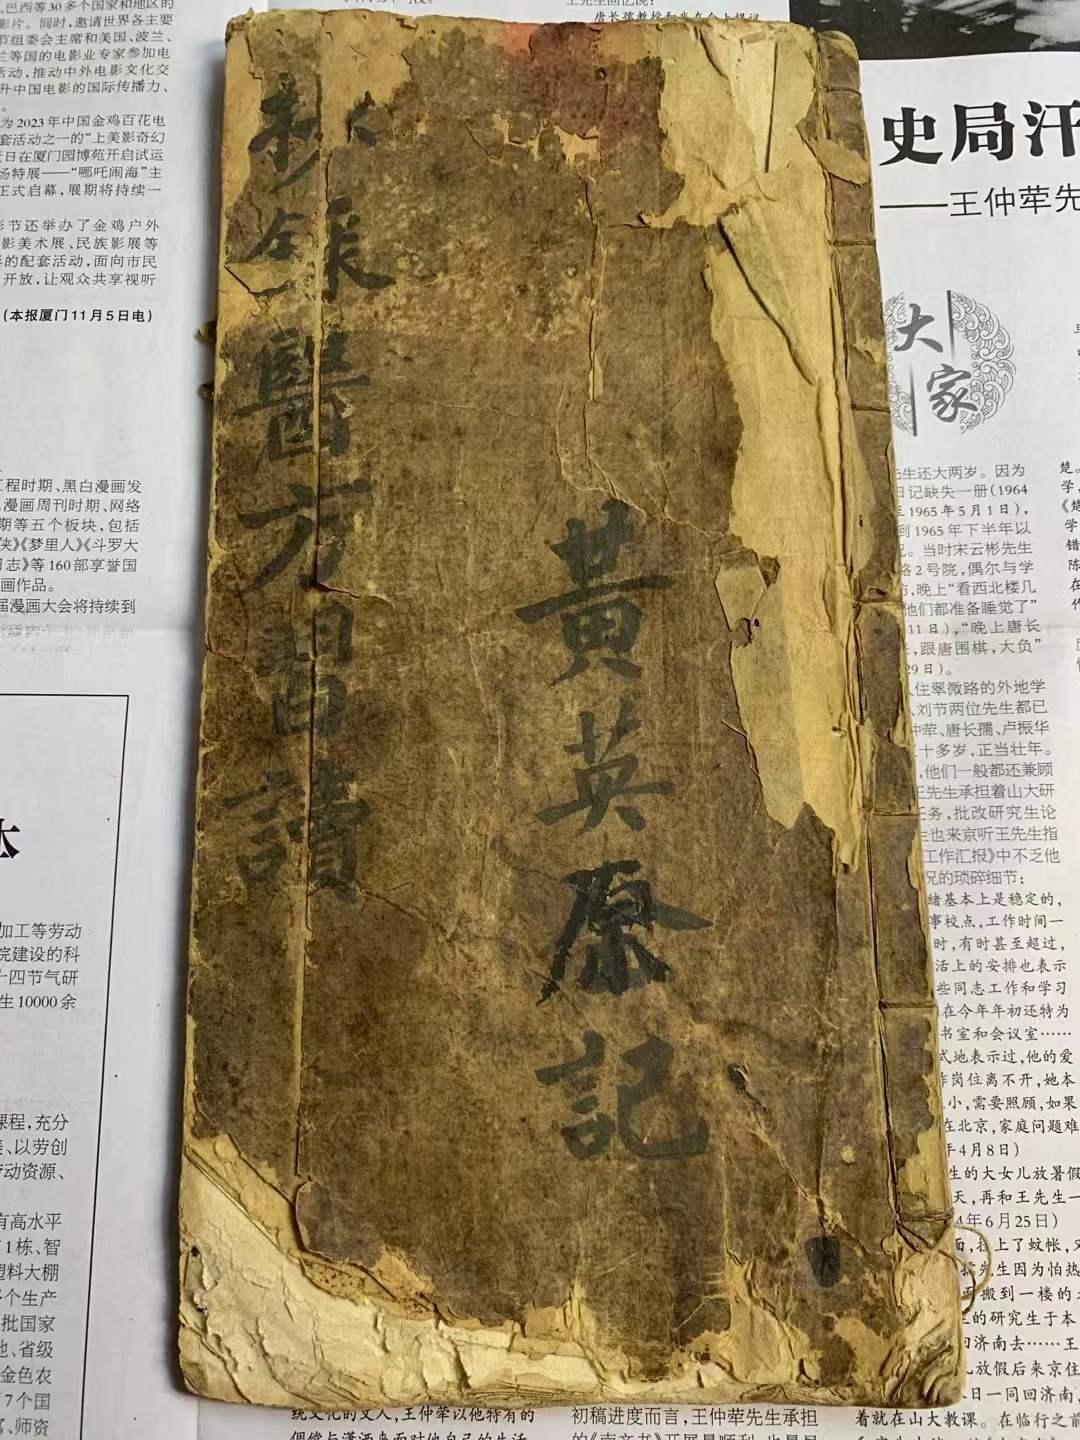 抄錄醫方習讀
黃英原記
、巴西等30多个国家和地区的
影片。同时,邀请世界各主要
节组委会主席和美国、波兰、
兰等国的电影业专家参加电
活动,推动中外电影文化交
升中国电影的国际传播力、
为2023年中国金鸡百花电
套活动之一的“上美影奇幻
近日在厦门园博苑开启试运
场特展——“哪吒闹海”主
正式启幕,展期将持续一
影节还举办了金鸡户外
影美术展、民族影展等
彩的配套活动,面向市民
开放,让观众共享视听
(本报厦门11月5日电)
工程时期、黑白漫画发
漫画周刊时期、网络
期等五个板块,包括
侠》《梦里人》《斗罗大
日志》等160部享誉国
画作品。
届漫画大会将持续到
加工等劳动
院建设的科
十四节气研
生10000余
课程,充分
、以劳创
劳动资源、
有高水平
1栋、智
塑料大棚
多个生产
批国家
、省级
金色农
7个国
、师资
史局汗
——王仲荦先
大家
先生还大两岁。因为
日记缺失一册(1964
至1965年5月1日),
到1965年下半年以
况。当时宋云彬先生
路2号院,偶尔与学
方,晚上“看西北楼几
他们都准备睡觉了”
11日),“晚上唐长
,跟唐围棋,大负”
29日)。
人住翠微路的外地学
、刘节两位先生都已
仲荦、唐长孺、卢振华
二十多岁,正当壮年。
,他们一般都还兼顾
王先生承担着山大研
任务,批改研究生论
生也来京听王先生指
工作汇报》中不乏他
况的琐碎细节:
绪基本上是稳定的,
事校点,工作时间一
时,有时甚至超过,
活上的安排也表示
些同志工作和学习
在今年年初还特为
书室和会议室……
式地表示过,他的爱
作岗位离不开,她本
小,需要照顾,如果
在北京,家庭问题难
年4月8日)
生的大女儿放暑假
天,再和王先生一
4年6月25日)
面,挂上了蚊帐,又
孺先生因为怕热
而搬到一楼的
的研究生于本
回济南去……王
儿放假后来京住
日一同回济南,
着就在山大教课。在临行之前
统文化的文人,王仲荦以他特有的
初稿进度而言,王仲荦先生承担